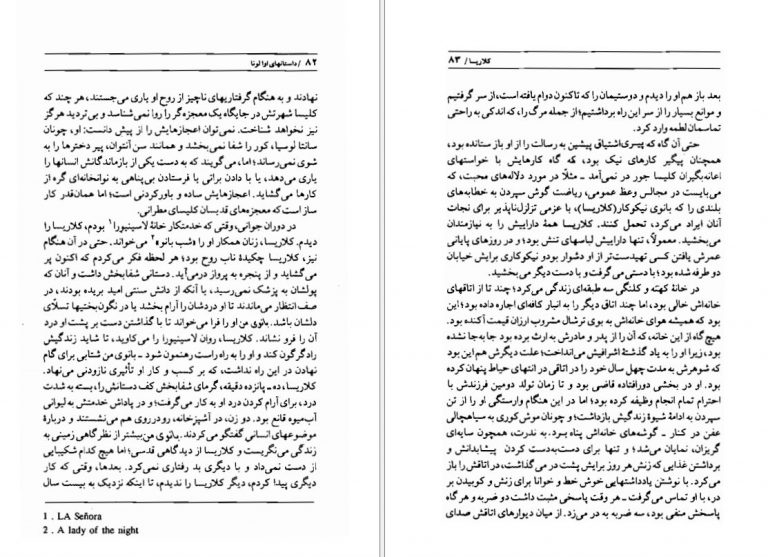 ۸۲ / داستانهای اوا لونا
نهادند و به هنگام گرفتاریهای ناچیز از روح او یاری می‌جستند، هر چند که
کلیسا شهرتش در جایگاه یک معجزه‌گر را روا نمی‌شناسد و بی‌تردید هرگز
نیز نخواهد شناخت. نمی‌توان اعجازهایش را از پیش دانست: او، چونان
سانتا لوسیا، کور را شفا نمی‌بخشد و همانند سن آنتوان، پیر دخترها را به
شوی نمی‌رساند؛ اما، می‌گویند که به دست یکی از بازماندگانش انسانها را
یاری می‌دهد، یا با دادن براتی یا فرستادن بی‌پناهی به نوانخانه‌ای گره از
کارها می‌گشاید. اعجازهایش ساده و باورکردنی است؛ اما همان‌قدر کار
ساز است که معجزه‌های قدیسان کلیسای مطرانی.
در دوران جوانی، وقتی که خدمتکار خانهٔ لاسینیورا۱ بودم، کلاریسا را
دیدم. کلاریسا، زنان همکار او را «شب بانوه»۲ می‌خواند. حتی در آن هنگام
نیز، کلاریسا چکیدهٔ ناب روح بود؛ هر لحظه فکر می‌کردم که اکنون پر
می‌گشاید و از پنجره به پرواز درمی‌آید. دستانی شفابخش داشت و آنان که
پولشان به پزشک نمی‌رسید، یا آنکه از دانش سنتی امید بریده بودند، در
صف انتظار می‌ماندند تا او دردشان را آرام بخشد یا در نگون‌بختیها تسلای
دلشان باشد. بانوی من او را فرا می‌خواند تا با گذاشتن دست بر پشت او درد
آن را فرو نشاند. کلاریسا، روان لاسینیورا را می‌کاوید، تا شاید زندگیش
رادگرگون کند و او را به راه راست رهنمون شود - بانوی من شتابی برای گام
نهادن در این راه نداشت، که بر کسب و کار او تأثیری نازدونی می‌نهاد.
کلاریسا، ده - پانزده دقیقه، گرمای شفابخش کف دستانش را، بسته به شدت
درد، برای آرام کردن درد او به کار می‌گرفت؛ و در پاداش خدمتش به لیوانی
آب‌میوه قانع بود. دو زن، در آشپزخانه، رودرروی هم می‌نشستند و دربارهٔ
موضوعهای انسانی گفتگو می‌کردند. بانوی من بیشتر از نظرگاهی زمینی به
زندگی می‌نگریست و کلاریسا از دیدگاهی قدسی؛ اما هیچ کدام شکیبایی
از دست نمی‌داد و با دیگری بد رفتاری نمی‌کرد. بعدها، وقتی که کار
دیگری پیدا کردم، دیگر کلاریسا را ندیدم، تا اینکه نزدیک به بیست سال
1 . LA Señora
2 . A lady of the night
کلاریسا / ۸۳
بعد باز هم او را دیدم و دوستیمان را که تاکنون دوام یافته است، از سر گرفتیم
و موانع بسیار را از سر این راه برداشتیم؛ از جمله مرگ را، که اندکی به راحتی
تماسمان لطمه وارد کرد.
حتی آن گاه که پیری اشتیاق پیشین به رسالت را از او باز ستانده بود،
همچنان پیگیر کارهای نیک بود، که گاه کارهایش با خواستهای
اعانه‌بگیران کلیسا جور در نمی‌آمد - مثلاً در مورد دلاله‌های محبت، که
می‌بایست در مجالس وعظ عمومی، ریاضت گوش سپردن به خطابه‌های
بلندی را که بانوی نیکوکار (کلاریسا)، با عزمی تزلزل‌ناپذیر برای نجات
آنان ایراد می‌کرد، تحمل کنند. کلاریسا همهٔ داراییش را به نیازمندان
می‌بخشید. معمولاً، تنها داراییش لباسهای تنش بود؛ و در روزهای پایانی
عمرش یافتن کسی تهیدست‌تر از او دشوار بودو نیکوکاری برایش خیابان
دو طرفه شده بود؛ با دستی می‌گرفت و با دست دیگر می‌بخشید.
در خانهٔ کهنه و کلنگی سه طبقه‌ای زندگی می‌کرد؛ چند تا از اتاقهای
خانه‌اش خالی بود، اما چند اتاق دیگر را به انبار کافه‌ای اجاره داده بود؛ این
بود که همیشه هوای خانه‌اش به بوی ترشال مشروب ارزان قیمت آکنده بود.
هیچ گاه از این خانه، که آن را از پدر و مادرش به ارث برده بود جا به‌جا نشده
بود، زیرا او را به یاد گذشتهٔ اشرافیش می‌انداخت؛ علت دیگرش هم این بود
که شوهرش به مدت چهل سال خود را در اتاقی در انتهای حیاط پنهان کرده
بود. او در بخشی دورافتاده قاضی بود و تا زمان تولد دومین فرزندش با
احترام تمام انجام وظیفه کرده بود؛ اما در این هنگام وارستگی او را از تن
سپردن به ادامهٔ شیوهٔ زندگیش بازداشت؛ و چونان موش کوری به سیاهچالی
عفن در کنار - گوشه‌های خانه‌اش پناه برد. به ندرت، همچون سایه‌ای
گریزان، نمایان می‌شد؛ و تنها برای دست‌به‌دست کردن پیشابدانش و
برداشتن غذایی که زنش هر روز برایش پشت در می‌گذاشت، در اتاقش را باز
می‌کرد. با نوشتن یادداشتهایی خوش خط و خوانا برای زنش و کوبیدن بر
در، با او تماس می‌گرفت - هر وقت پاسخی مثبت داشت دو ضربه و هر گاه
پاسخش منفی بود، سه ضربه به در می‌زد. از میان دیوارهای اتاقش صدای